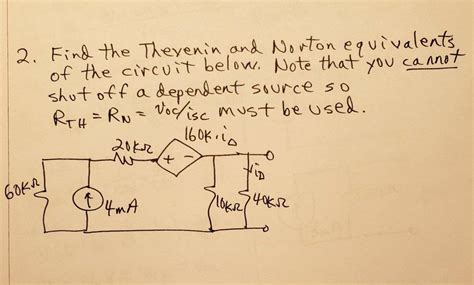 2. Find the Thevenin and Norton equivalents
of the circuit below. Note that you cannot
shut off a dependent source so
RTH = RN = Voc/isc must be used.
160K·iD
20KΩ
+ -
iD
60KΩ
4mA
10KΩ
40KΩ